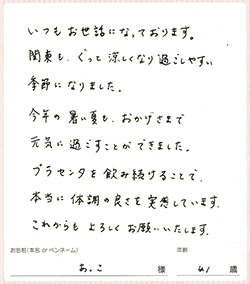 いつもお世話になっております。
関東も、ぐっと涼しくなり過ごしやすい
季節になりました。
今年の暑い夏も、おかげさまで
元気に過ごすことができました。
プラセンタを飲み続けることで、
本当に体調の良さを実感しています。
これからもよろしくお願いいたします。
お名前(本名 or ペンネーム)
年齢
あっこ 様 41 歳